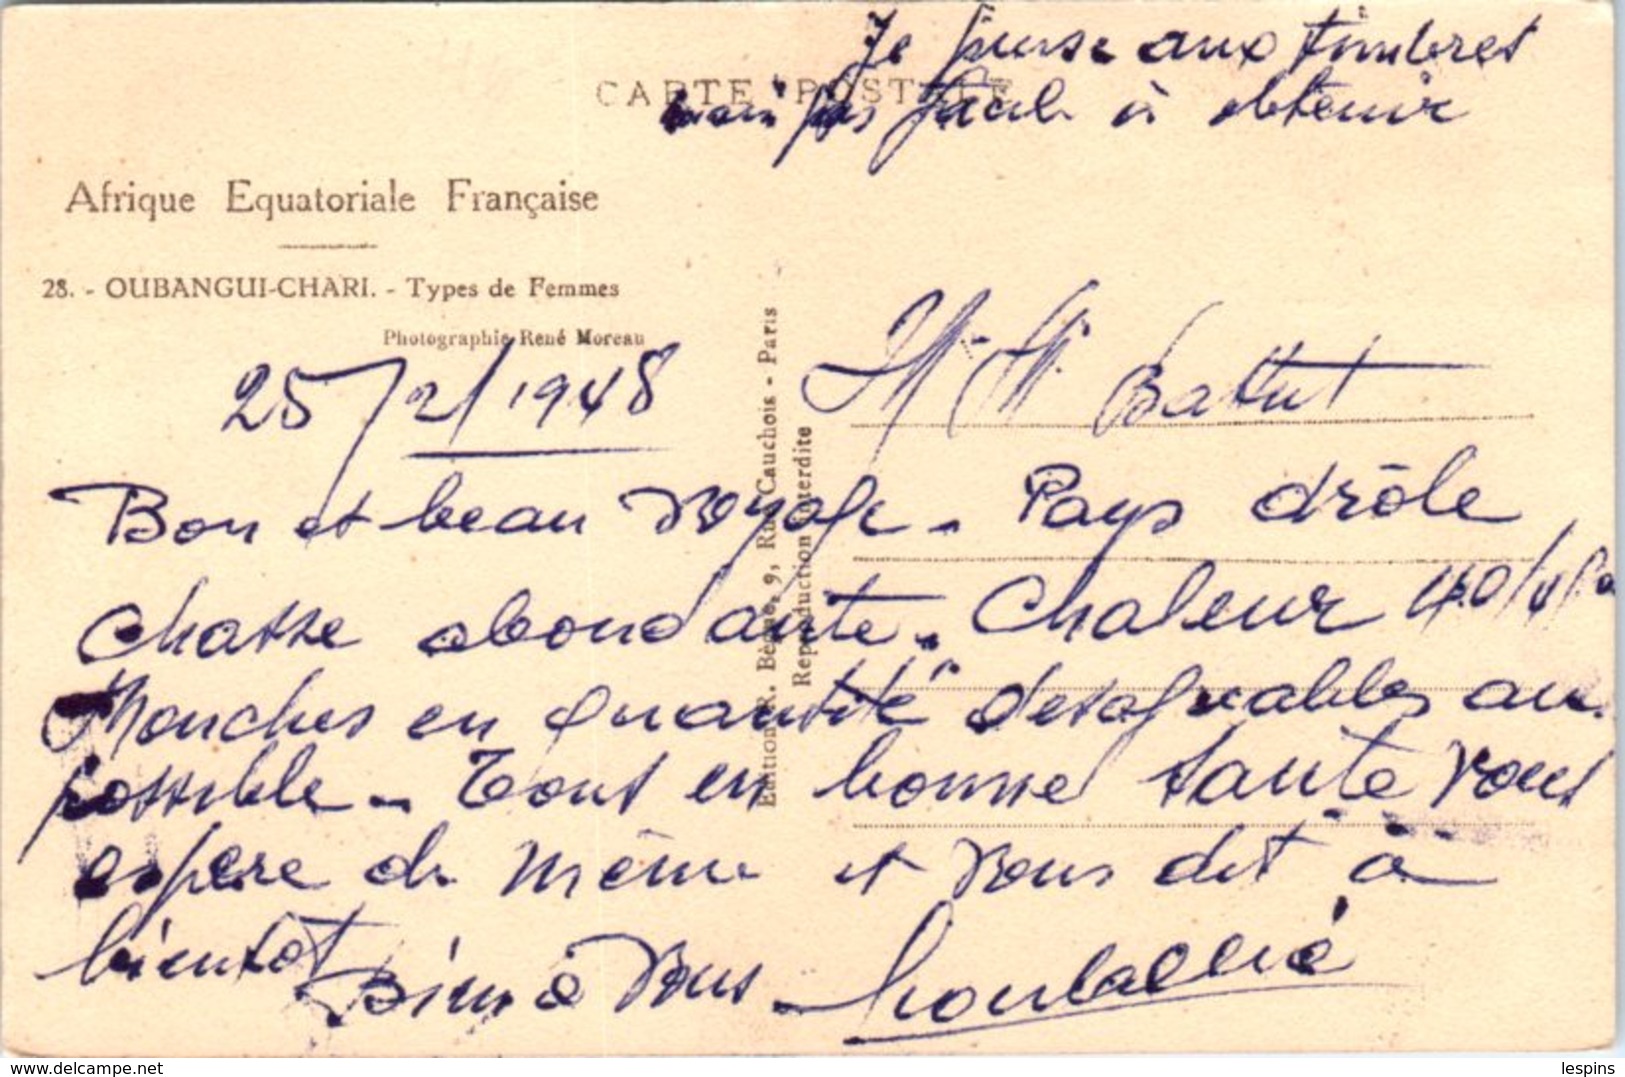 Je pense aux timbres
mais pas facile à obtenir
CARTE POSTALE
Afrique Equatoriale Française
28. - OUBANGUI-CHARI. - Types de Femmes
Photographie René Moreau
25/2/1948
M. M. Battut
Bon et beau voyage. Pays drôle
chasse abondante. Chaleur 40/45°
Mouches en quantité désagréables au
possible. Tout en bonne santé vous
espère de même et vous dit à
bientôt Bien à vous
Edition R. Bègue, 9, Rue Cauchois - Paris
Reproduction interdite
lespins